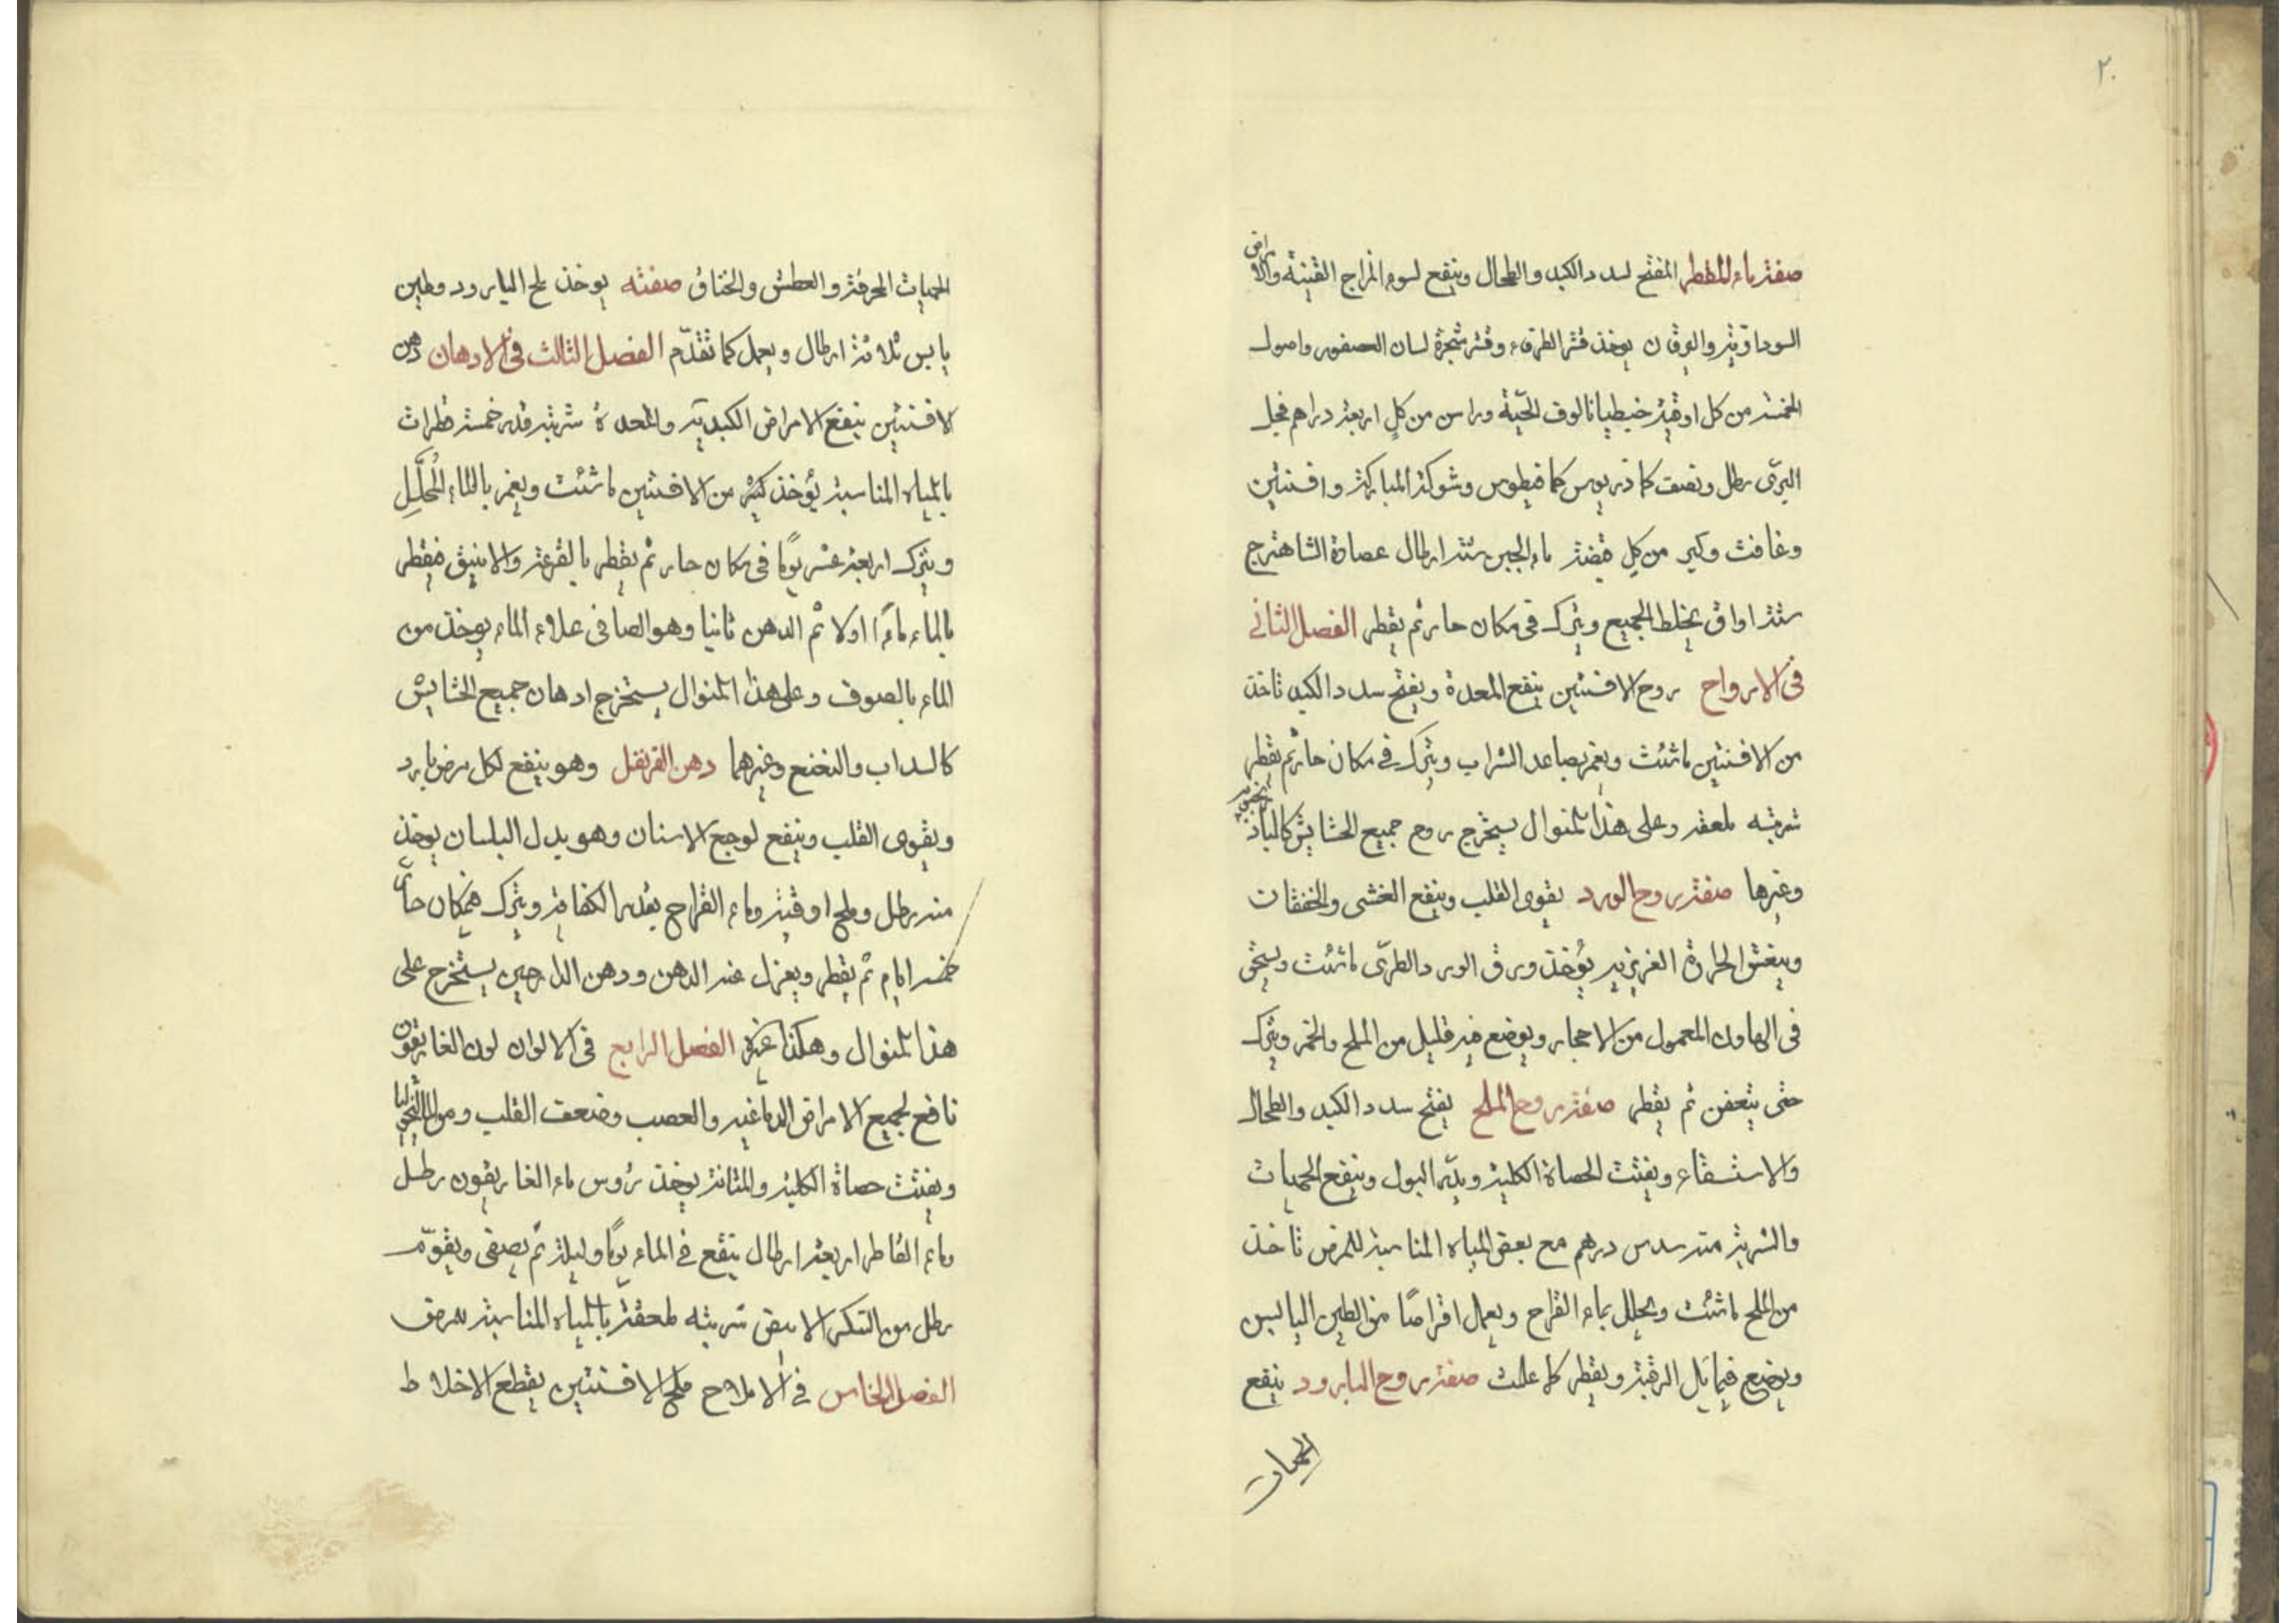 ٢٠
صفة ماء المقطر المفتح لسدد الكبد والطحال وينفع لسوء المزاج القنية والامراض
السوداوية واليرقان يوخذ قشر الطرفاء وقشر شجرة لسان العصفور واصول
الخمسة من كل اوقية خيطيانا لوف الحية وراسن من كل اربعة دراهم فجل
البرى رطل ونصف كمادريوس كمافيطوس وشوكة المباركة وافسنتين
وغافث وكبر من كل قبضة ماء الجبن ستة ارطال عصارة الشاهترج
ستة اواق يخلط الجميع ويترك فى مكان حار ثم يقطر الفصل الثانى
فى الارواح روح الافسنتين ينفع المعدة ويفتح سدد الكبد تاخذ
من الافسنتين ما شئت ويغمر بصاعد الشراب ويترك فى مكان حار ثم يقطر
شربته ملعقة وعلى هذا المنوال يستخرج روح جميع الحشايش كالبادرنجبويه
وغيرها صفة روح الورد يقوى القلب وينفع الغشى والخفقان
وينعش الحرارة الغريزية يؤخذ ورق الورد الطرّى ما شئت ويسحق
فى الهاون المعمول من الاحجار ويوضع فيه قليل من الملح والخمر ويترك
حتى يتعفن ثم يقطر صفة روح الملح يفتح سدد الكبد والطحال
والاستسقاء ويفتت الحصاة الكلية ويدّر البول وينفع الحميات
والشربة منه سدس درهم مع بعض المياه المناسبة للمرض تاخذ
من الملح ما شئت ويحلل بماء القراح ويعمل اقراصًا من الطين اليابس
ويوضع فيما يل الرقبة ويقطر كما علمت صفة روح البارود ينفع
الحميات
الحميات المحرقة والعطش والخناق صفته يوخذ ملح البارود وطين
يابس ثلاثة ارطال ويعمل كما تقدّم الفصل الثالث فى الادهان دهن
الافسنتين ينفع الامراض الكبدية والمعدة شربته قدر خمسة قطرات
بالمياه المناسبة يؤخذ كثير من الافسنتين ما شئت ويغمر بالماء المُحلَّلِ
ويترك اربعة عشر يومًا فى مكان حار ثم يقطر بالقرعة والانبيق فيقطر
بالماء ماءً اولا ثم الدهن ثانيا وهو الصافى علاوء الماء يوخذ من
الماء بالصوف وعلى هذا المنوال يستخرج ادهان جميع الحشايش
كالسداب والنعنع وغيرهما دهن القرنفل وهو ينفع لكل مرض بارد
ويقوى القلب وينفع لوجع الاسنان وهو بدل البلسان يوخذ
منه رطل وملح اوقية وماء القراح بقدر الكفاية ويترك فى مكان حارّ
خمسة ايام ثم يقطر ويعزل عنه الدهن ودهن الدارچين يستخرج على
هذا المنوال وهكذا غيره الفصل الرابع فى الالوان لون الغاريقون
نافع لجميع الامراض الدماغية والعصب وضعف القلب ومن المالنخوليا
ويفتت حصاة الكلية والمثانة يوخذ رؤس ماء الغاريقون رطل
وماء القاطر اربعة ارطال ينقع فى الماء يومًا وليلة ثم يصفى ويقوّم
رطل من السكر الابيض شربته ملعقة بالمياه المناسبة للمرض
الفصل الخامس فى الاملاح ملح الافسنتين يقطع الاخلاط